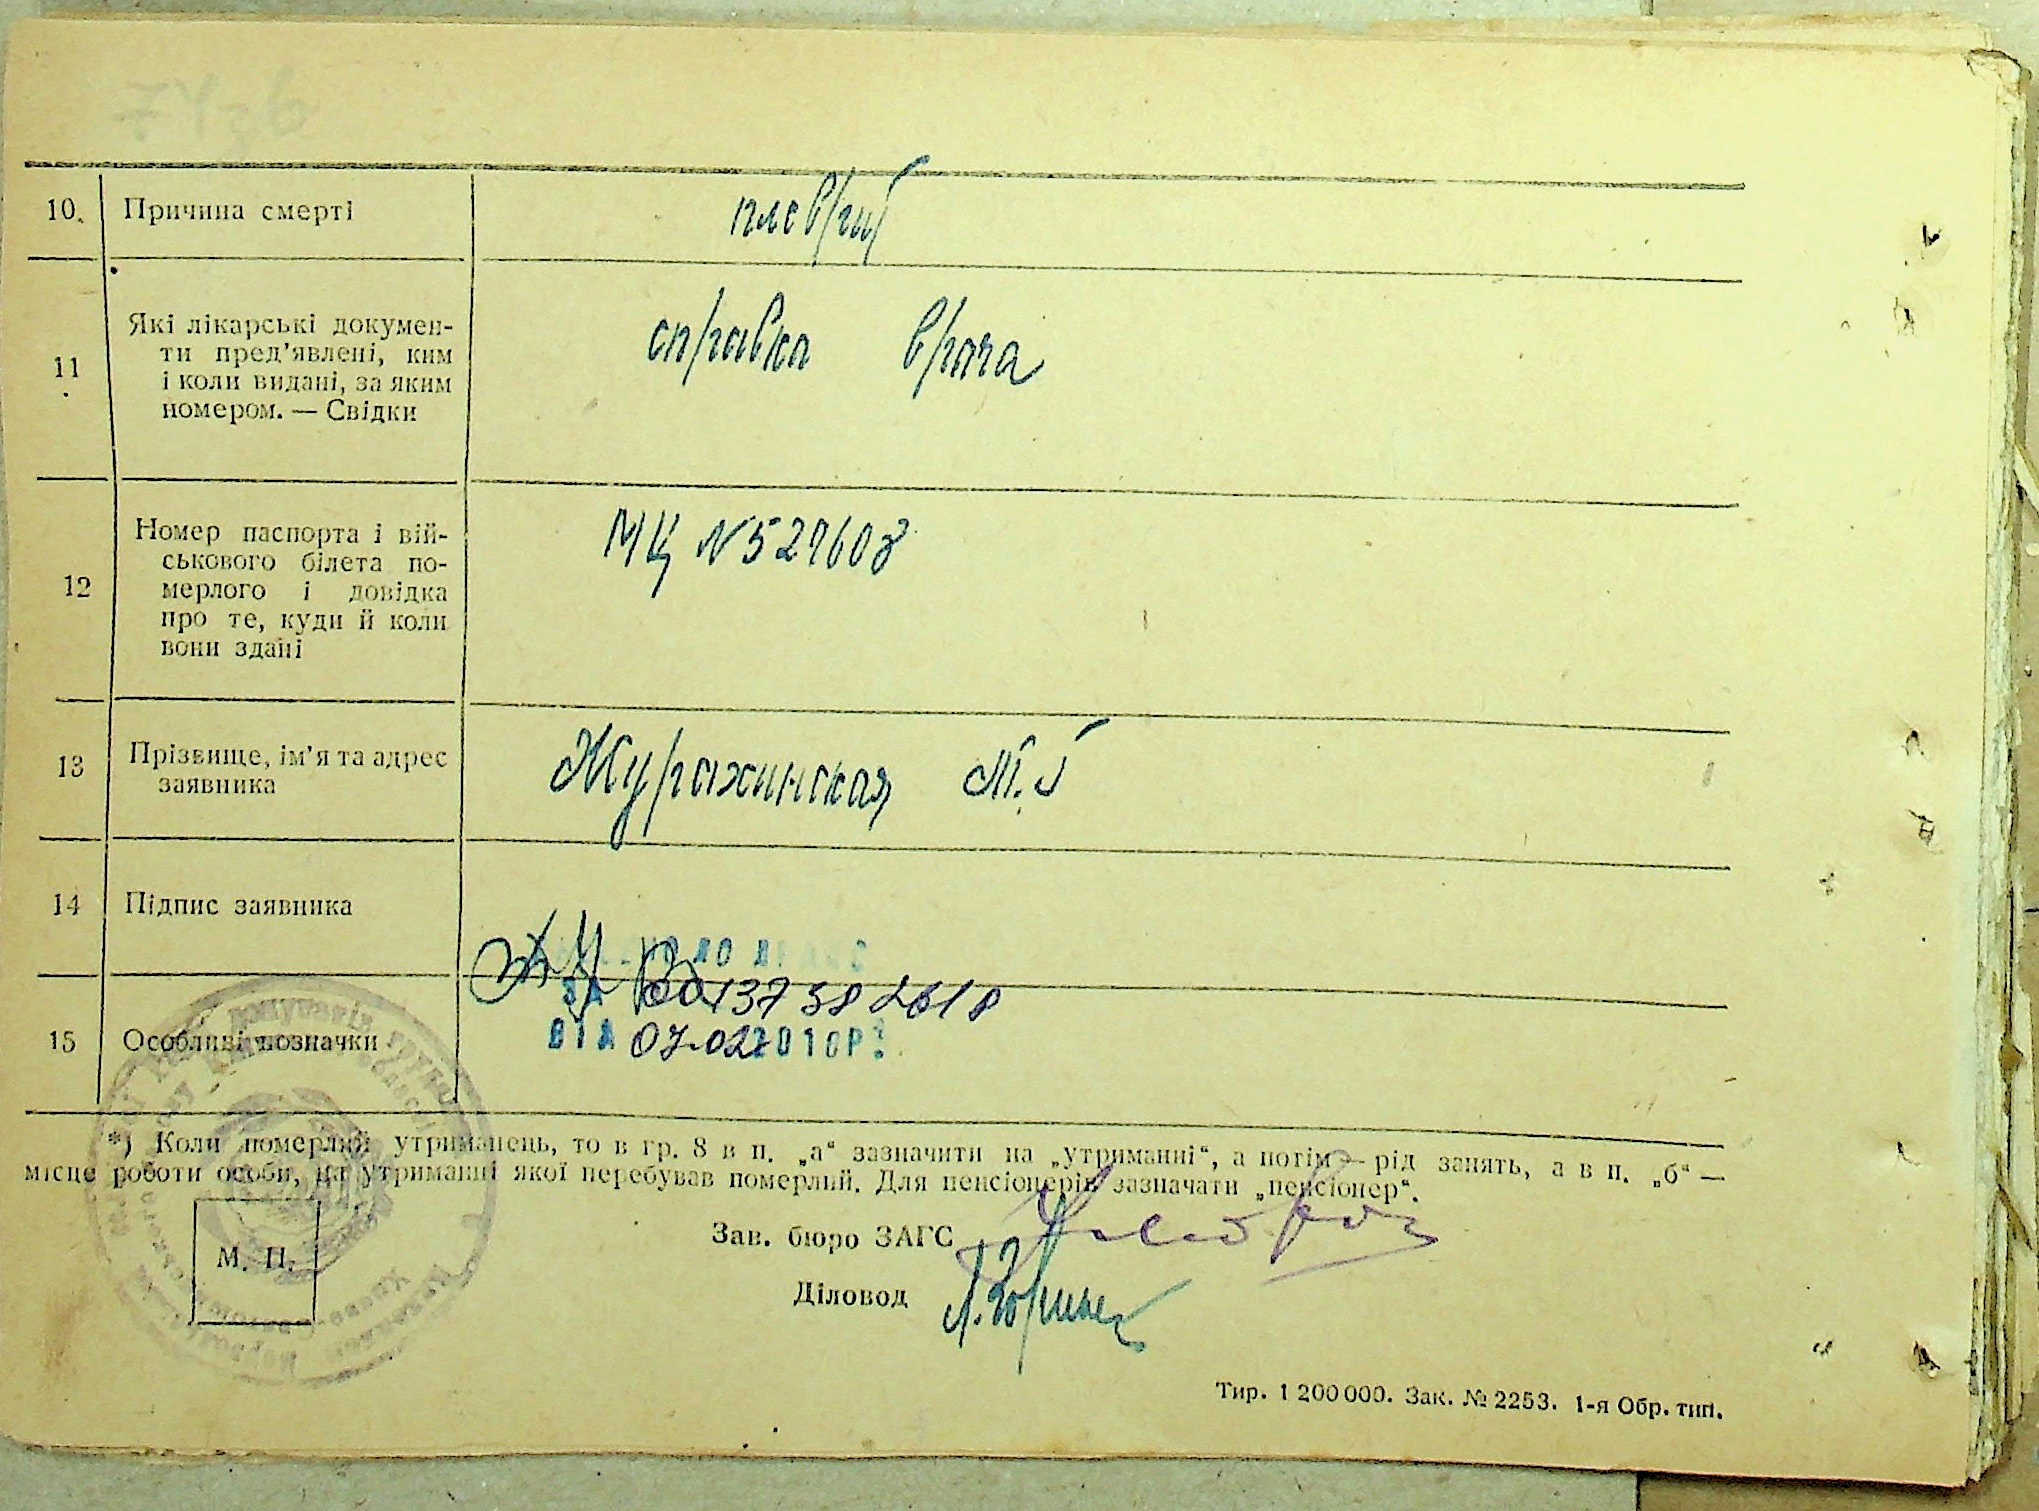 10. Причина смерті
плеврит
11 Які лікарські докумен-
ти пред'явлені, ким
і коли видані, за яким
номером. — Свідки
справка врача
12 Номер паспорта і вій-
ськового білета по-
мерлого і довідка
про те, куди й коли
вони здані
МЦ N 529608
13 Прізвище, ім'я та адрес
заявника
Журахинская М.
14 Підпис заявника
15 Особливі позначки
ЗА 00137582618
ВІД 07.02.2010Р.
*) Коли померлий утриманець, то в гр. 8 в п. „а“ зазначити на „утриманні“, а потім — рід занять, а в п. „б“ —
місце роботи особи, на утриманні якої перебував померлий. Для пенсіонерів зазначати „пенсіонер“.
Зав. бюро ЗАГС
М. П.
Діловод
Тир. 1 200 000. Зак. № 2253. 1-я Обр. тип.